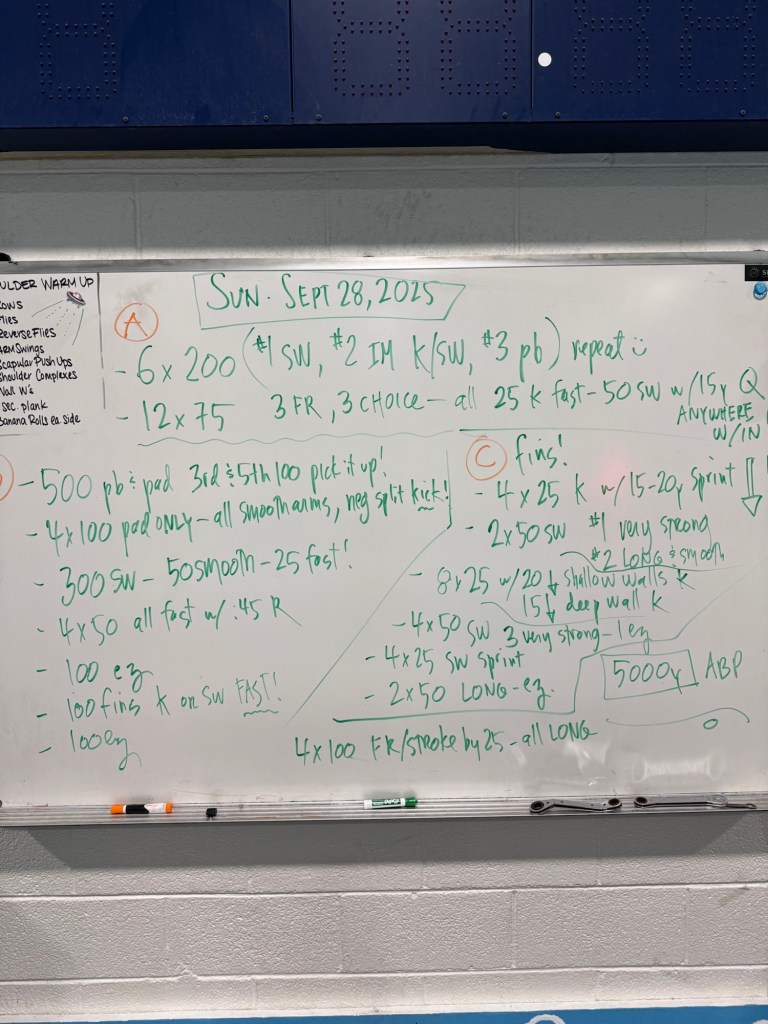 ULDER WARM UP
ROWS
Flies
Reverse Flies
ARM Swings
Scapular Push Ups
Shoulder Complexes
Wall W's
sec. plank
Banana Rolls ea. side
SUN. SEPT 28, 2025
A
- 6 x 200 (#1 SW, #2 IM K/SW, #3 pb) repeat
- 12 x 75 3 FR, 3 CHOICE - all 25 K fast - 50 SW w/ 15y Q
ANYWHERE
W/IN
- 500 pb & pad 3rd & 5th 100 pick it up!
- 4 x 100 pad ONLY - all smooth arms, neg split kick!
- 300 SW - 50 smooth - 25 fast!
- 4 x 50 all fast w/ :45 R
- 100 ez
- 100 fins K on SW FAST!
- 100 ez
C fins!
- 4 x 25 K w/ 15-20y sprint
- 2 x 50 SW #1 very strong
#2 LONG & smooth
- 8 x 25 w/ 20 ↓ shallow walls K
15 ↓ deep wall K
- 4 x 50 SW 3 very strong - 1 ez
- 4 x 25 SW sprint
- 2 x 50 LONG - ez
5000y ABP
4 x 100 FR/stroke by 25 - all LONG